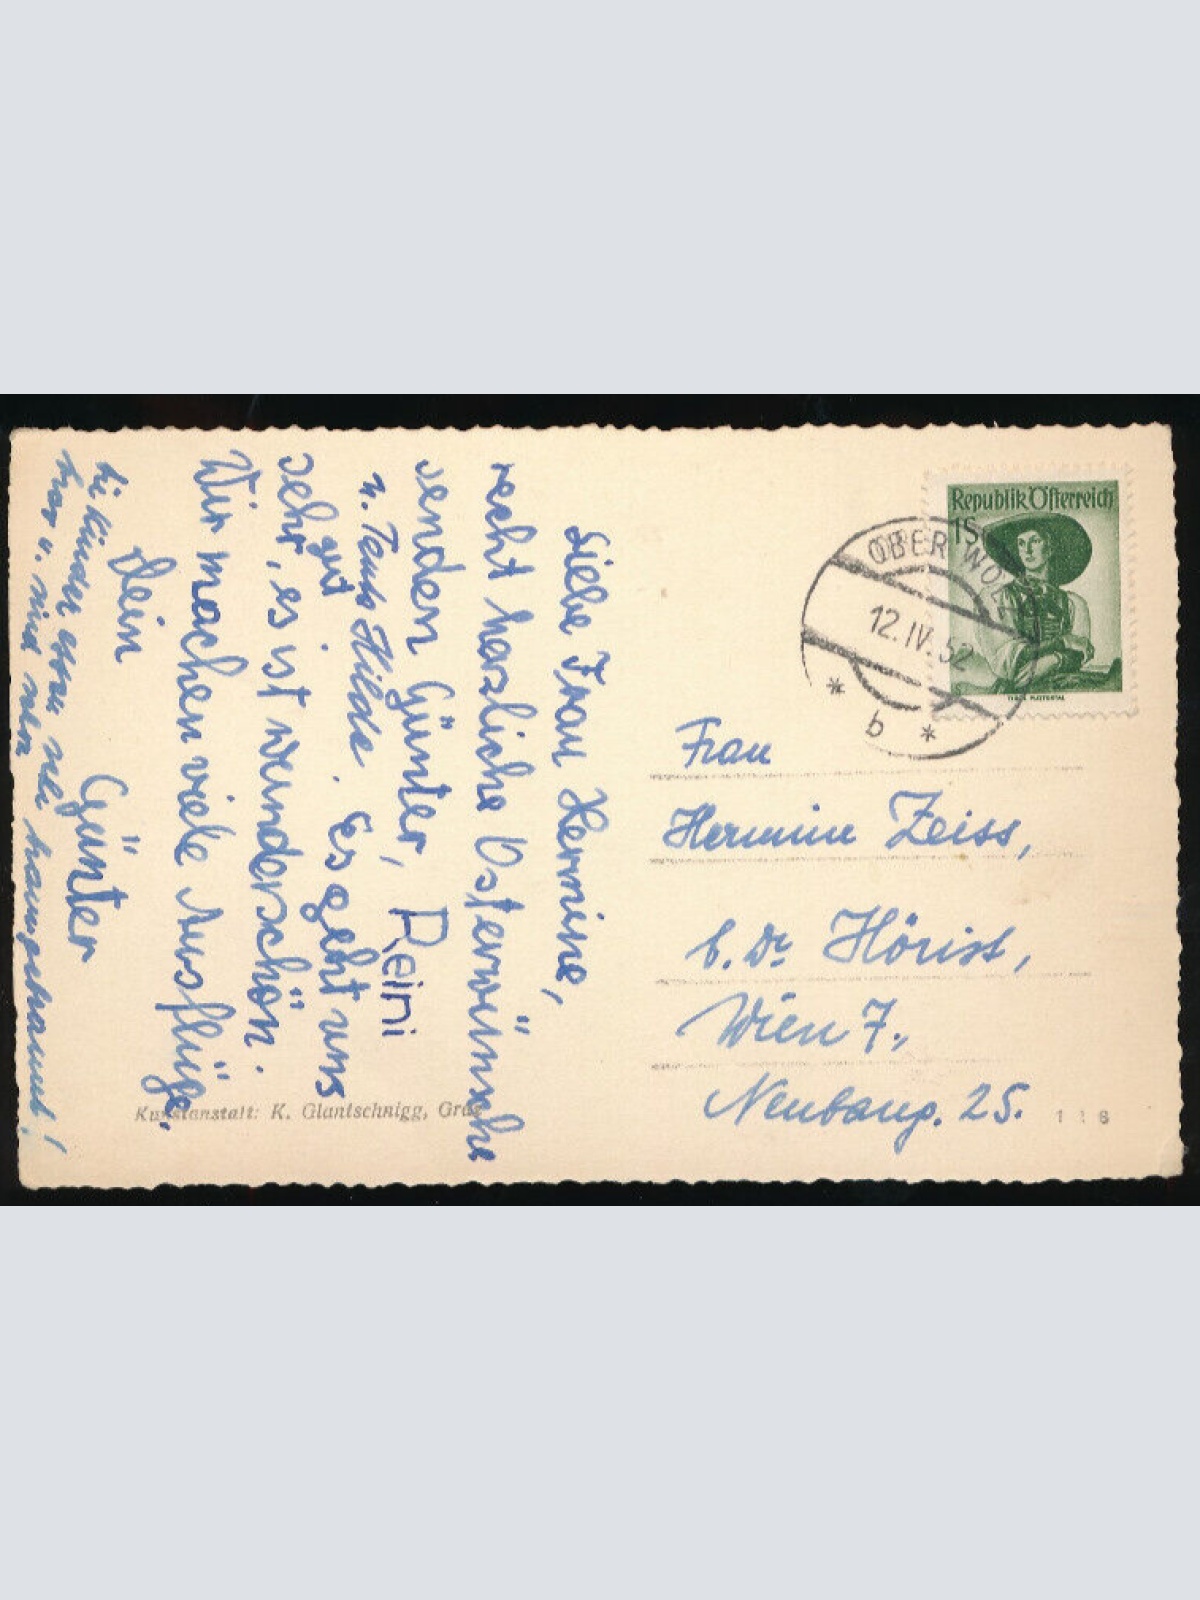 Liebe Frau Hermine,
recht herzliche Osterwünsche
senden Günter, Reini
u. Tante Hilde. Es geht uns
sehr gut, es ist wunderschön.
Wir machen viele Ausflüge.
Dein
Günter
Die Kinder essen sehr
brav u. sind schon braungebrannt!
Kunstanstalt: K. Glantschnigg, Graz
Republik Österreich
1S
TIROL PUSTERTAL
OBERWÖLZ
12.IV.52
* b *
Frau
Hermine Zeiss,
b. Dr Hörist,
Wien 7.,
Neubaug. 25.
118